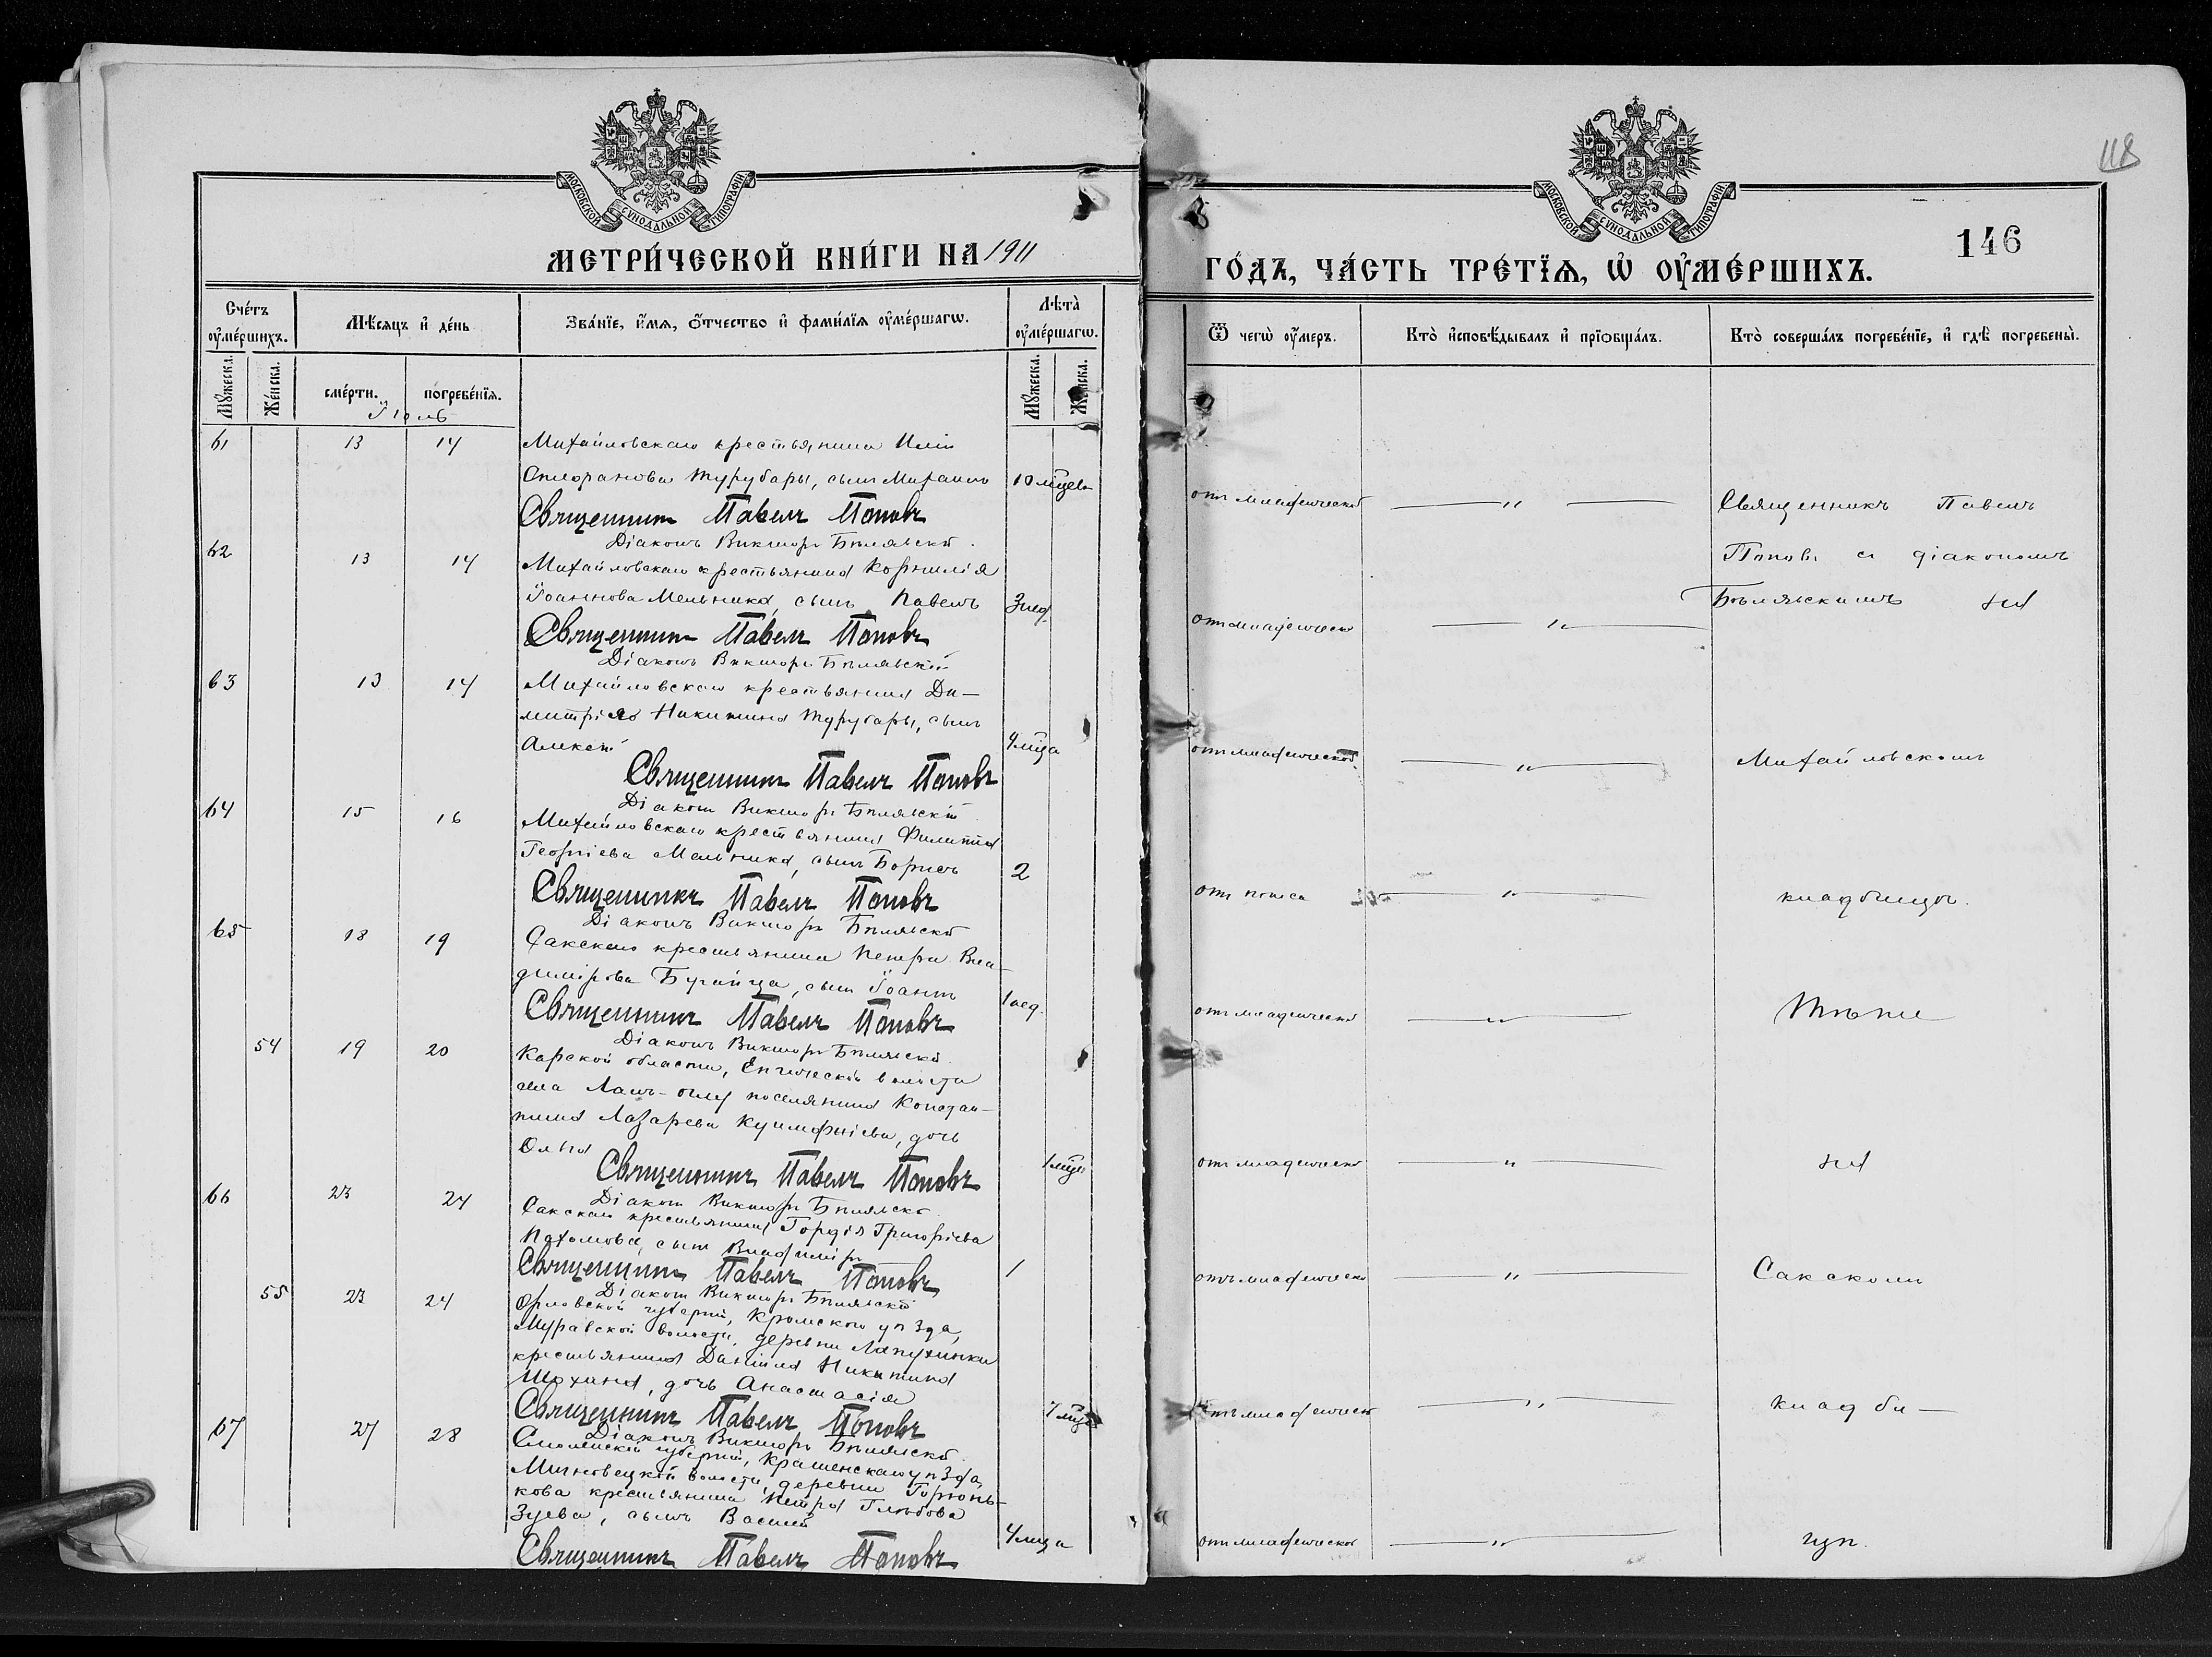 МОСКОВСКОЙ СУНОДАЛЬНОЙ ТИПОГРАФІИ
МЕТРИ́ЧЕСКОЙ КНИ́ГИ НА 1911
Сче́тъ ᲂу҆ме́ршихъ.
Мѣ́сяцъ и҆ де́нь
Зва́нїе, и҆́мя, ѻ҆́тчество и҆ фами́лїя ᲂу҆ме́ршагѡ.
Лѣ́та ᲂу҆ме́ршагѡ.
Мꙋ́жеска.
Же́нска.
сме́рти.
погребе́нїя.
Мꙋ́жеска.
Же́нска.
Іюль
61 13 14 Михайловскаго крестьянина Иліи
Турубары, сынъ Михаилъ 10 мцевъ
Священникъ Павелъ Поповъ
Діаконъ Викторъ Бѣлявскій
62 13 14 Михайловскаго крестьянина Корнилія
Іоаннова Мельника, сынъ Павелъ 3 нед.
Священникъ Павелъ Поповъ
Діаконъ Викторъ Бѣлявскій
63 13 14 Михайловскаго крестьянина Ди–
митрія Никитина Турубары, сынъ
Алексѣй 4 мца
Священникъ Павелъ Поповъ
Діаконъ Викторъ Бѣлявскій
64 15 16 Михайловскаго крестьянина Филиппа
Георгіева Мельника, сынъ Борисъ 2
Священникъ Павелъ Поповъ
Діаконъ Викторъ Бѣлявскій
65 18 19 Сакскаго крестьянина Петра Вла–
димірова сынъ Іоаннъ 1 нед.
Священникъ Павелъ Поповъ
Діаконъ Викторъ Бѣлявскій
54 19 20 Карской области, волости
села поселянина Констан–
тина Лазарева дочь
Ольга 1 мцъ
Священникъ Павелъ Поповъ
Діаконъ Викторъ Бѣлявскій
66 23 24 Сакскаго крестьянина Гордія Григоріева
Пахомова, сынъ Владиміръ 1
Священникъ Павелъ Поповъ
Діаконъ Викторъ Бѣлявскій
55 23 24 Орловской губерніи, Кромскаго уѣзда,
Муравской волости, деревни Лапухинки
крестьянина Даніила Никитина
Шохина, дочь Анастасія
Священникъ Павелъ Поповъ
Діаконъ Викторъ Бѣлявскій
67 27 28 Смоленской губерніи, уѣзда,
волости, деревни Горюнь–
кова крестьянина Петра Глѣбова
Зуева, сынъ Василій 4 мца
Священникъ Павелъ Поповъ
118
МОСКОВСКОЙ СУНОДАЛЬНОЙ ТИПОГРАФІИ
146
ГО́ДЪ, ЧА́СТЬ ТРЕ́ТЇѦ, Ѡ҆ ОУ҆МЕ́РШИХЪ.
Ѿ чегѡ̀ ᲂу҆́меръ.
Кто̀ и҆сповѣ́дывалъ и҆ прїѡбща́лъ.
Кто̀ соверша́лъ погребе́нїе, и҆ гдѣ̀ погребены̀.
отъ младенческой — " — Священникъ Павелъ
Поповъ съ діакономъ
Бѣлявскимъ на
отъ младенческ — " —
отъ младенческой — " — Михайловскомъ
отъ поноса — " — кладбищѣ.
отъ младенческой — " — Тѣже
отъ младенческой — " — на
отъ младенческой — " — Сакскомъ
отъ младенческ — " — кладби–
отъ младенческой — " — щѣ.